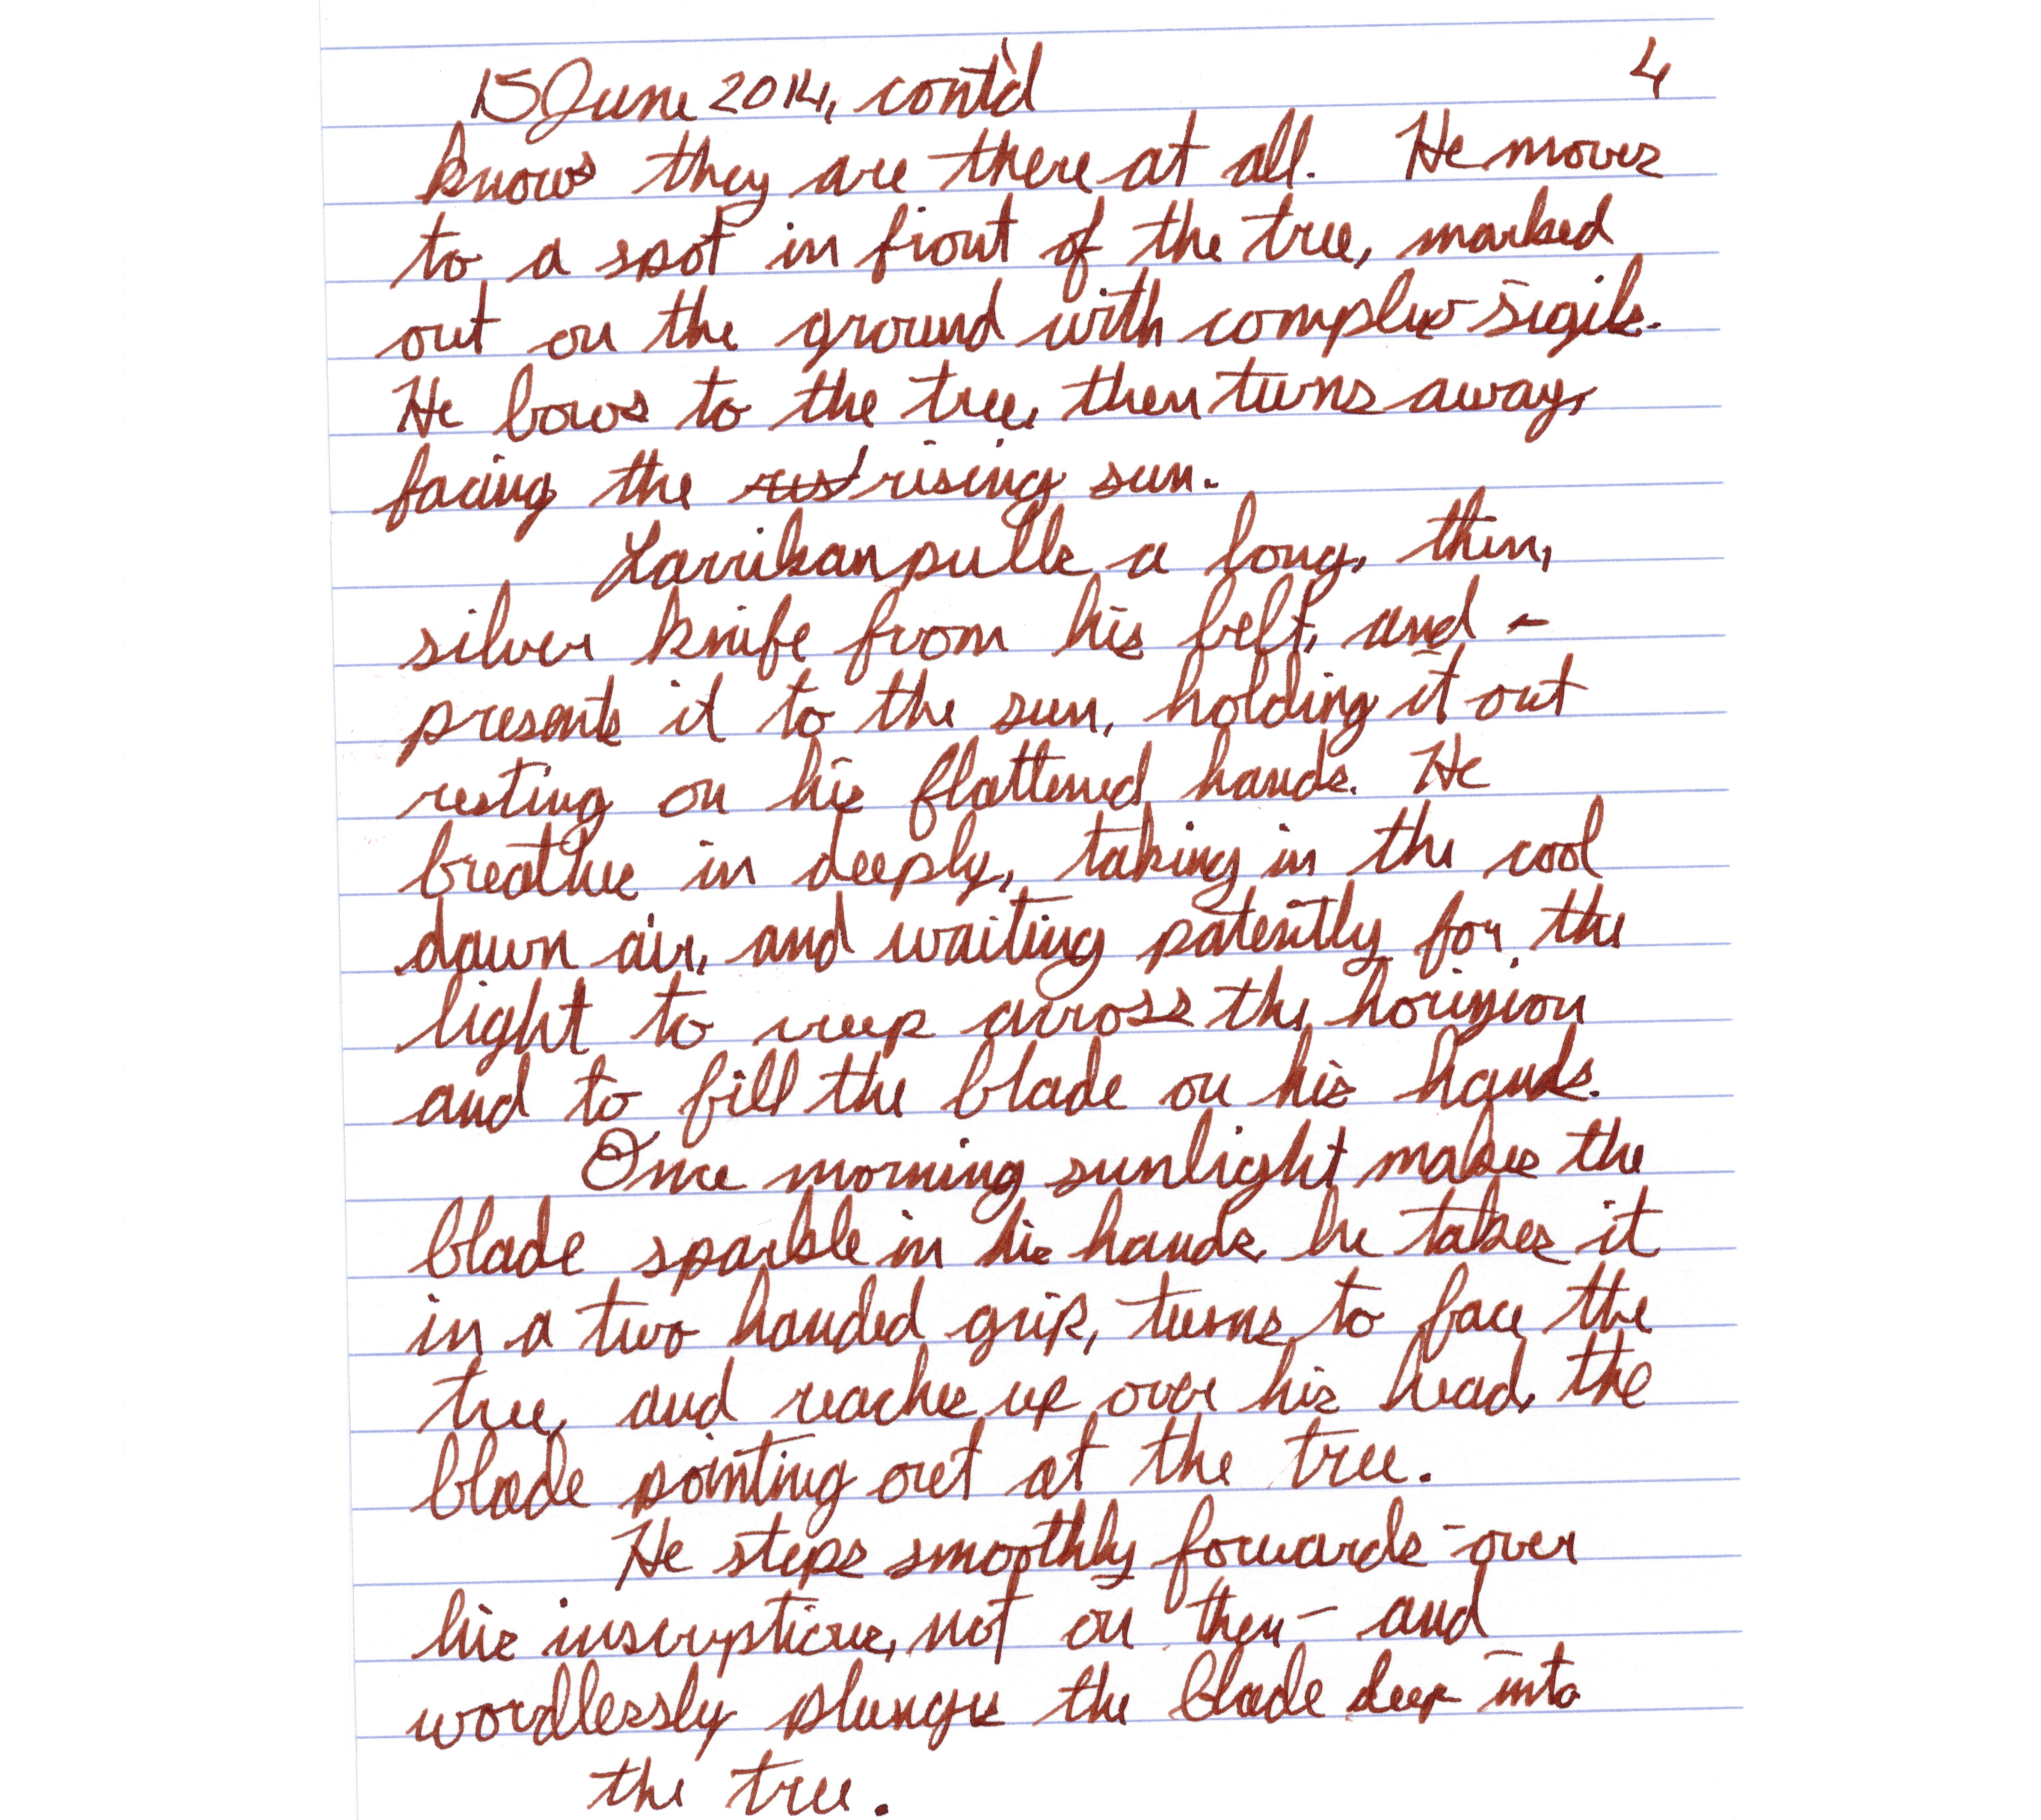 15 June 2014, cont'd 4
knows they are there at all. He moves
to a spot in front of the tree, marked
out on the ground with complex sigils.
He bows to the tree, then turns away,
facing the rist rising sun.
Larrikan pulls a long, thin,
silver knife from his belt, and -
presents it to the sun, holding it out
resting on his flattened hands. He
breathes in deeply, taking in the cool
dawn air, and waiting patently for the
light to creep across the horizion
and to fill the blade on his hands.
Once morning sunlight makes the
blade sparkle in his hands, he takes it
in a two handed grip, turns to face the
tree, and reaches up over his head, the
blade pointing out at the tree.
He steps smoothly forwards - over
his inscriptions, not on them - and
wordlessly plunges the blade deep into
the tree.